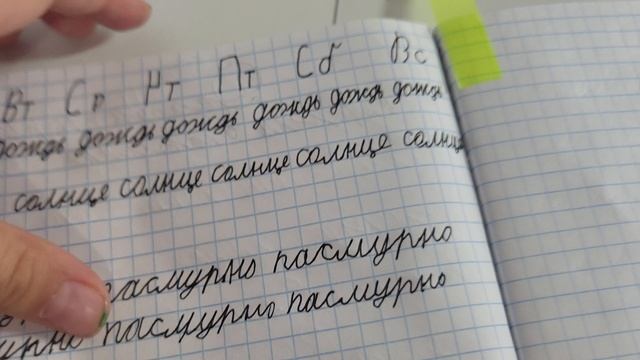 Вт Ср Чт Пт Сб Вс
дождь дождь дождь дождь дождь дождь
солнце солнце солнце солнце солнце
пасмурно пасмурно
пасмурно пасмурно